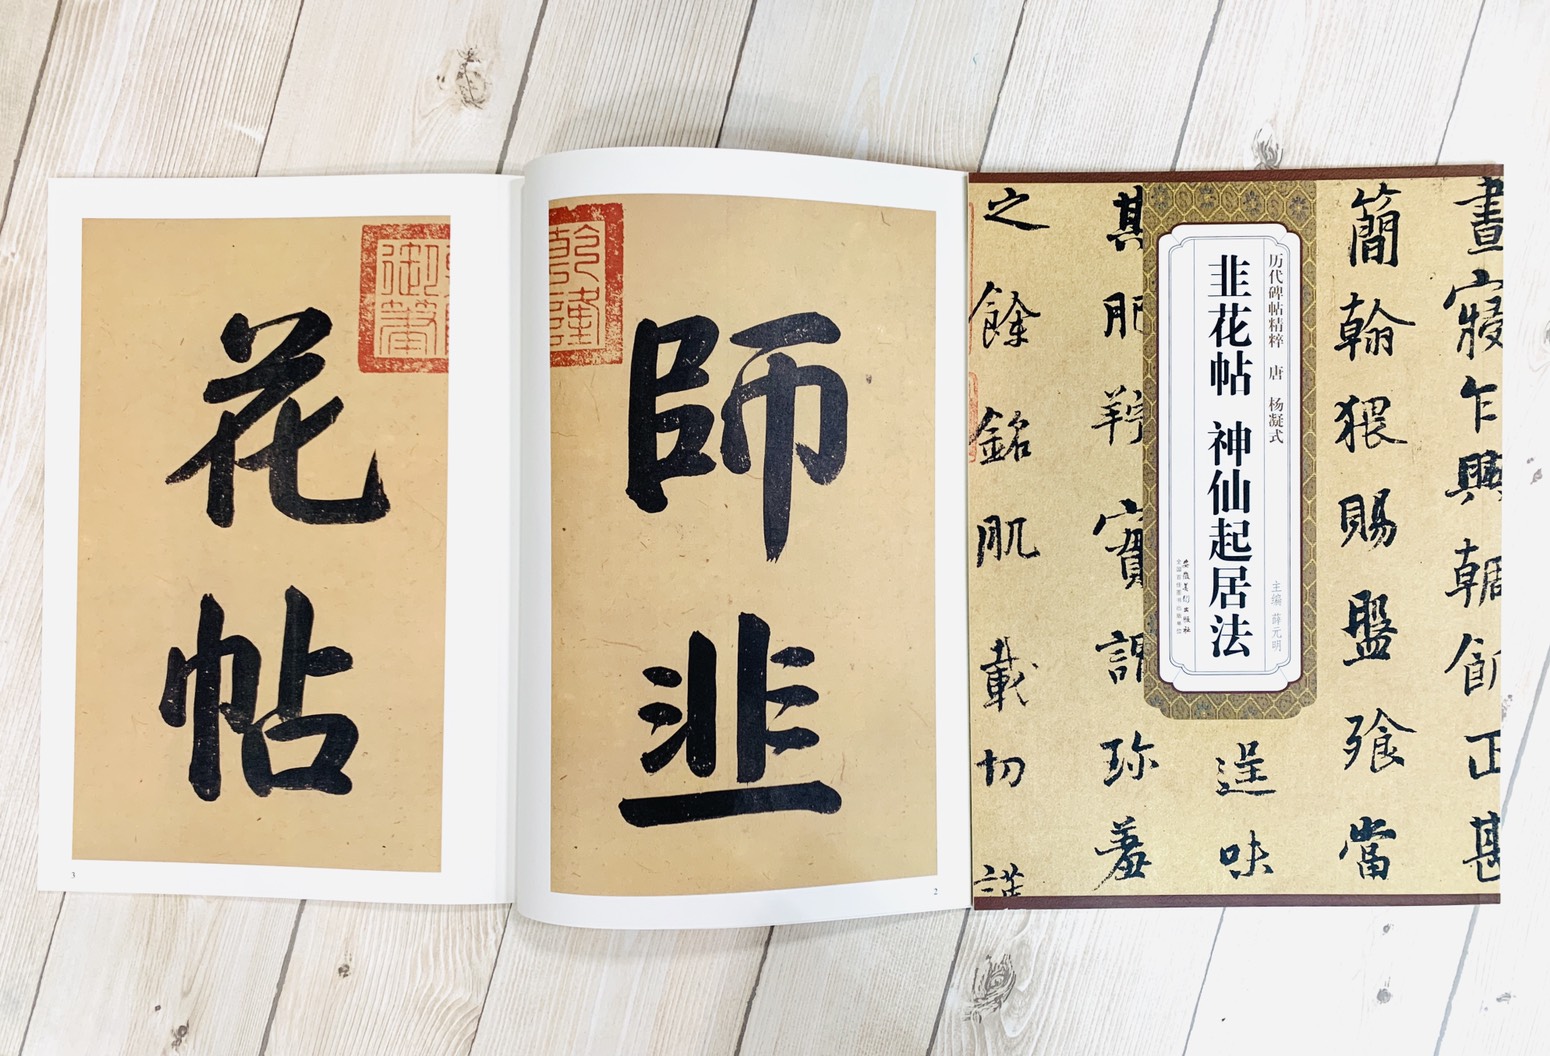 晝寢乍興輖飢正甚
簡翰猥賜盤飧當
逞味
其肥羜實謂珍羞
之餘銘肌載切謹
历代碑帖精粹 唐 杨凝式
主编 薛元明
韭花帖 神仙起居法
安徽美术出版社
師韭
2
花帖
乾隆
御筆
3